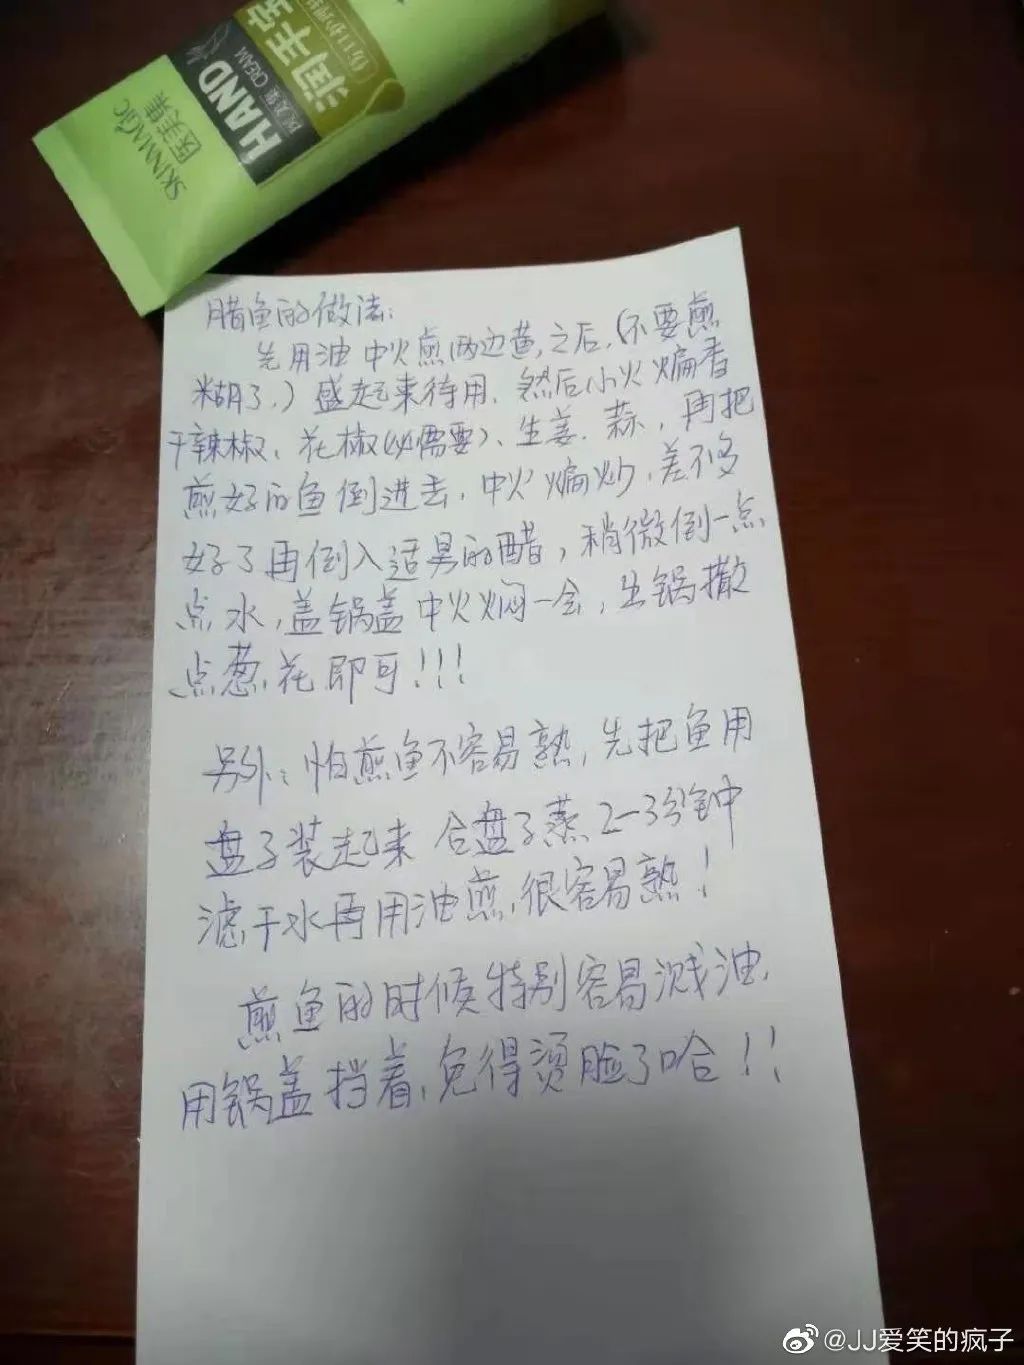 SKINMAGIC
医美集
HAND
CREAM
润手
腊鱼的做法:
先用油中火煎两边黄,之后,(不要煎
糊了.)盛起来待用.然后小火煸香
干辣椒、花椒(必需要)、生姜.蒜,再把
煎好的鱼倒进去,中火煸炒,差不多
好了再倒入适量的醋,稍微倒一点
点水,盖锅盖中火焖一会,出锅撒
点葱花即可!!!
另外:怕煎鱼不容易熟,先把鱼用
盘子装起来 合盘子蒸2-3分钟
滤干水再用油煎,很容易熟!
煎鱼的时候特别容易溅油,
用锅盖挡着,免得烫脸了哈!!
@JJ爱笑的疯子